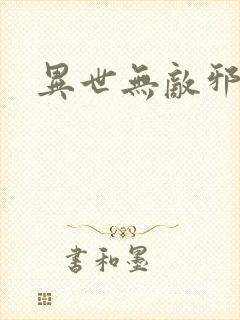 異世無敵邪
書和墨